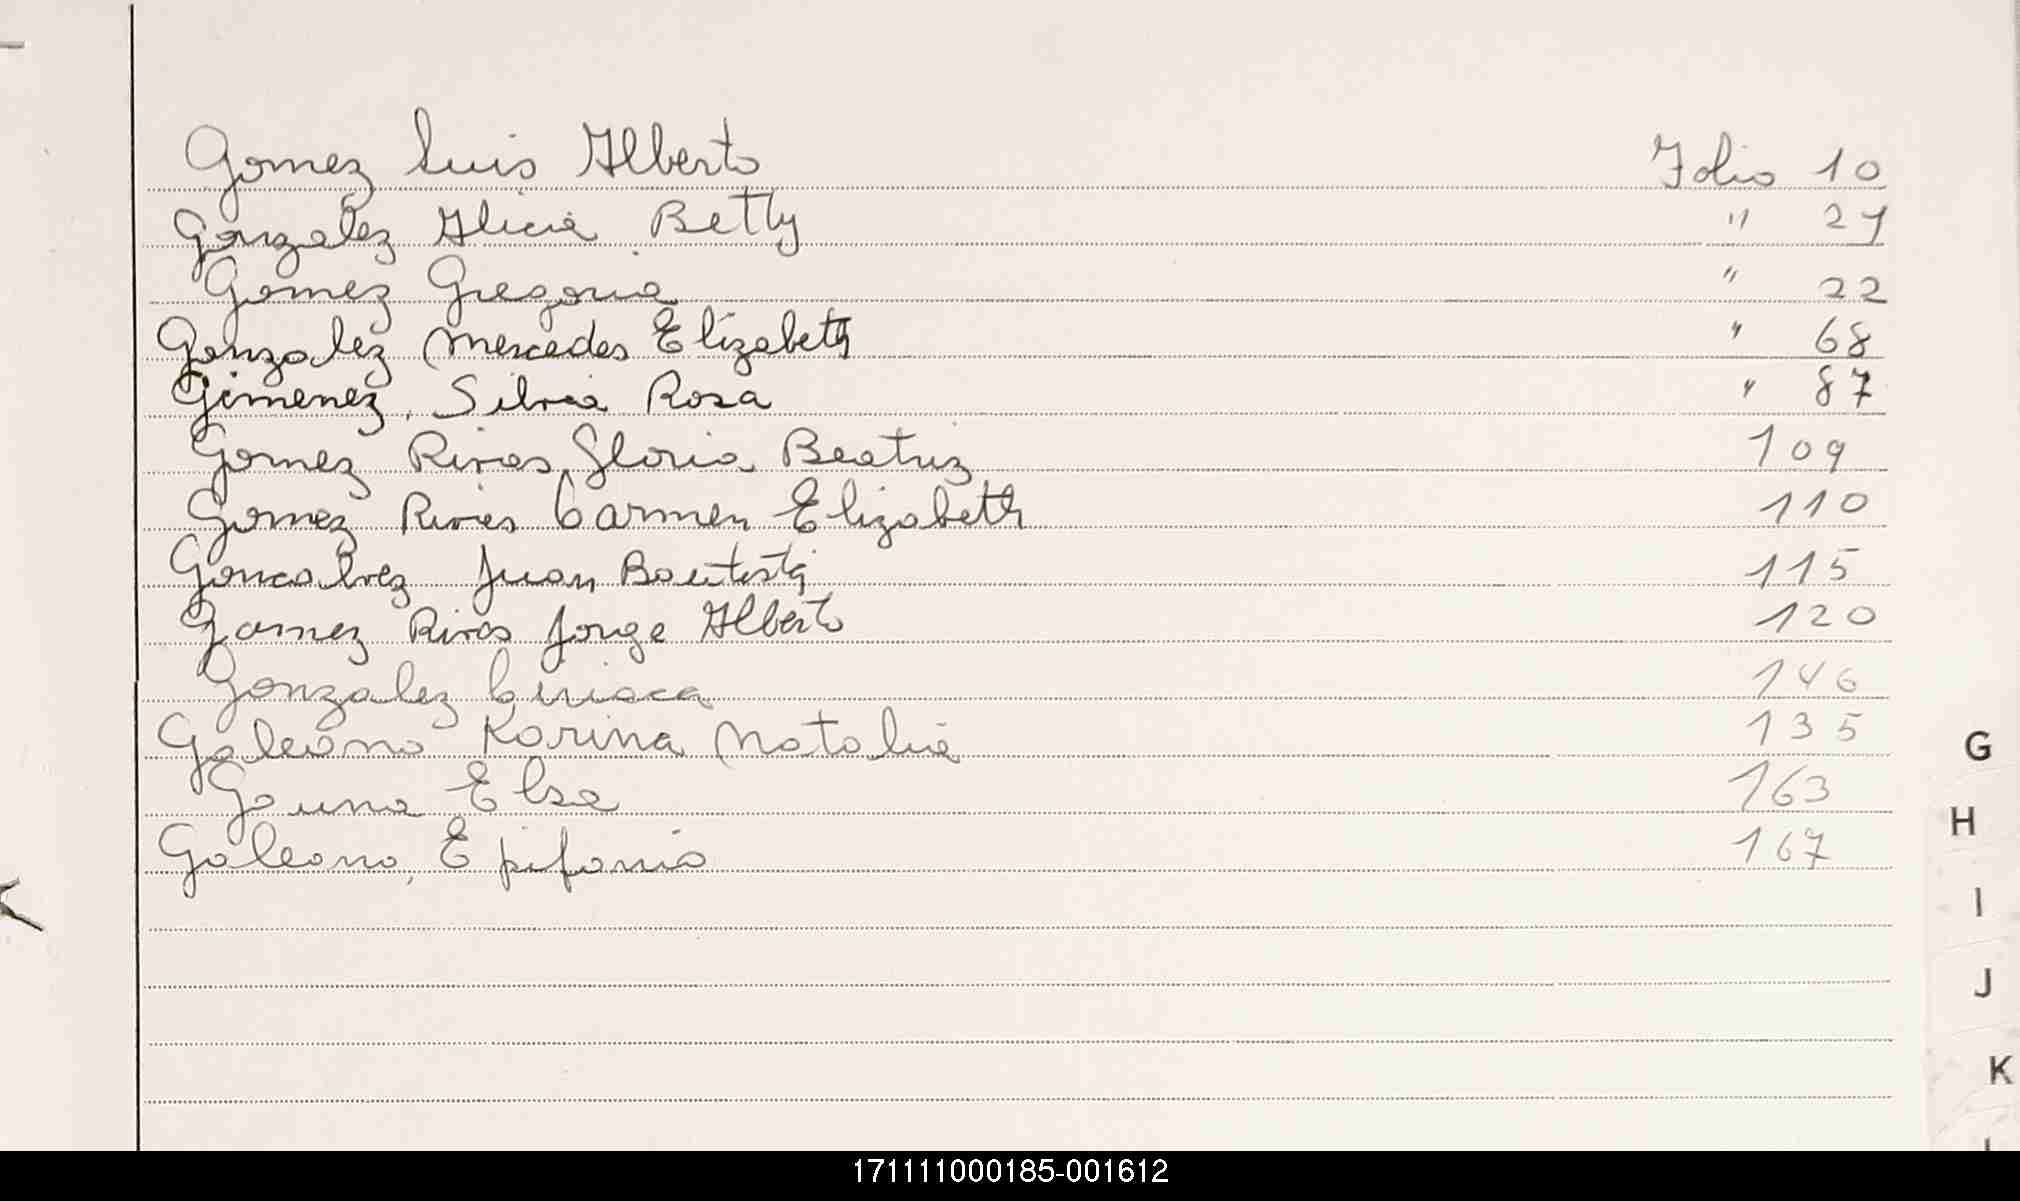 Gomez Luis Alberto Folio 10
Gonzalez Alicia Betty " 21
Gomez Gregoria " 22
Gonzalez Mercedes Elizabeth " 68
Gimenez, Silvia Rosa " 87
Gomez Rivas, Gloria Beatriz 109
Gomez Rivas Carmen Elizabeth 110
Goncalvez Juan Bautista 115
Gomez Rivas Jorge Alberto 120
Gonzalez Ciriaca 146
Galeano Karina Natalia 135
G
Gauna Elsa 163
H
Galeano, Epifanio 167
I
J
K
171111000185-001612